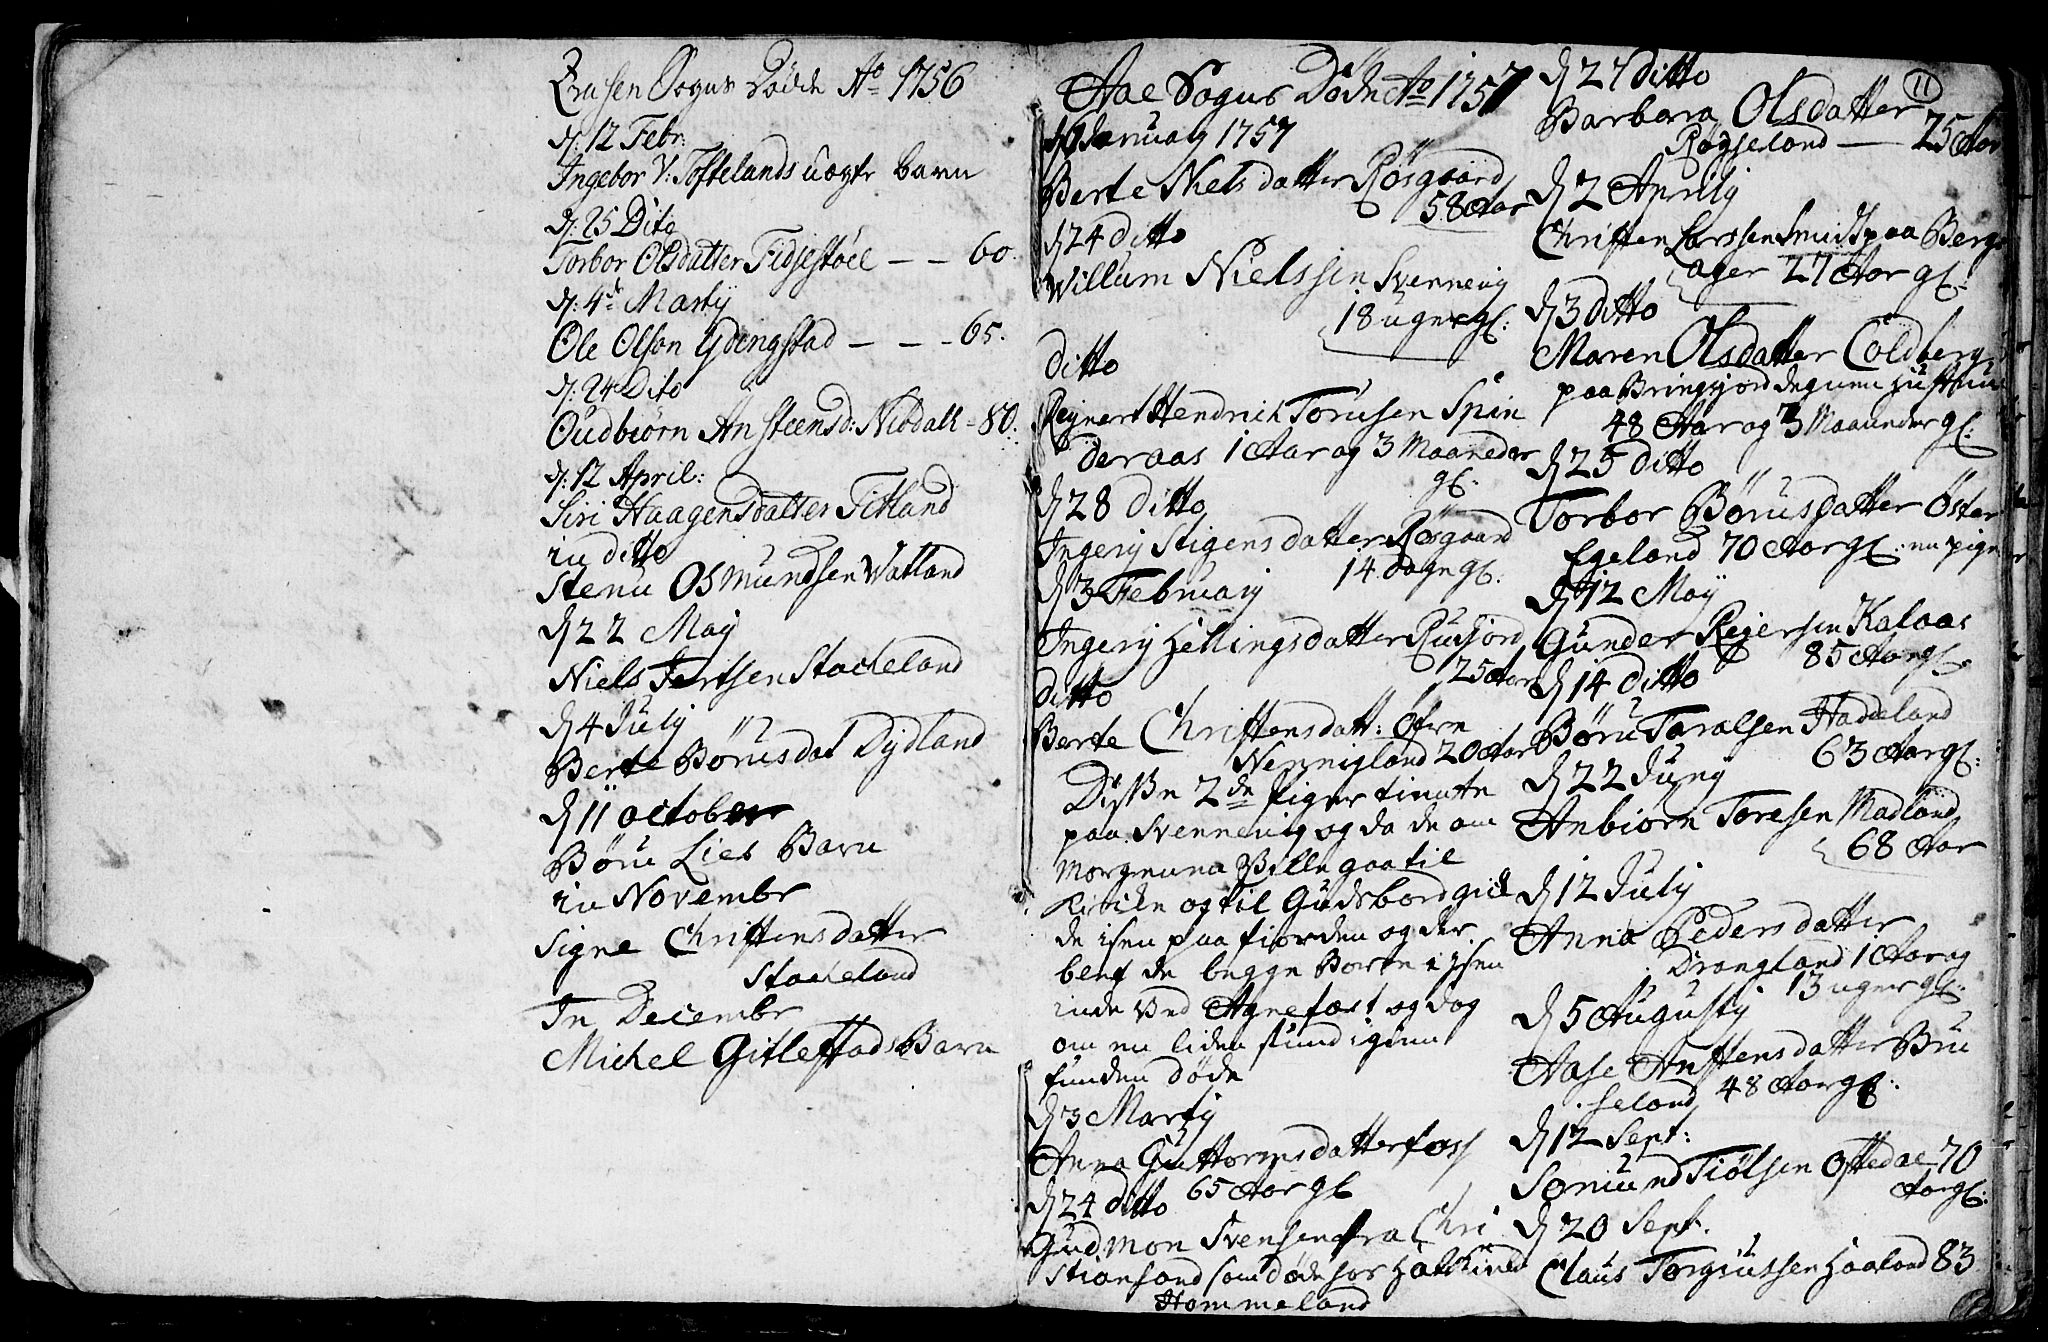 Sogns Døde Ao 1756
d: 12 Febr:
Ingebor V: Toftelands uægte barn
d: 25 Dito
Torbor Olsdatter Fidjestöel - - 60.
d: 4d Martij
Ole Olson Ydengstad - - - 65.
d: 24 Dito
Gudbiörn Ansteensd: Nibdall - 80.
d: 12 April:
Siri Haagensdatter Titland
in ditto
Stenu Osmundsen Watland
d 22 Maij
Niels Stacheland
d 4 Julij
Berte Börusdat Dydland
d 11 october
Böru Lies Barn
in Novembr
Signe Christensdatter
Stacheland
In Decembr
Michel Gitlestads Barn
Aae Sogns Døde Ao 1757
Januarij 1757
Berte Nielsdatter Røsgaard
58 Aar
d 24 ditto
Willum Nielssen Svennevig
18 uger gl:
ditto
Rejnert Hendrich Torusen Spin
deraas 1 Aar og 3 Maaneder
gl:
d 28 ditto
Ingerij Stigensdatter Røsgaard
14 dage gl:
d 3 Februarij
Ingerij Hellingsdatter Rusfiord
25 Aar
ditto
Berte Christensdatt: Øfern
Nennigland 20 Aar
Disse 2de piger tiente
paa Svennevig og da de om
Morgenena Ville gaa til
Kircken og til Guds bord gick
de isen paa fiorden og der
blef de begge Borte i isen
inde Ved Agnefæst og dog
om en liden stund igien
funden døde
d 3 Martij
Anna Guttormsdatter foss
65 Aar gl
d 24 ditto
Gudmon Svensen fra Chri
stiansand som døde hos
Hommeland
11
d 27 ditto
Barbara Olsdatter
Røgseland — 25 Aar
d 2 Aprilij
Christen Larssen Smidt paa Bergs
ager 27 Aar gl:
d 3 ditto
Maren Olsdatter Coldberg
paa Bringsjord degnens hustrue
48 Aar og 3 Maaneder gl:
d 25 ditto
Torbor Börusdatter Öster
Egeland 70 Aar gl: en pige
d 12 Maij
Gunder Rejersen Kalaas
85 Aar gl:
d 14 ditto
Böru Taralsen Haddeland
63 Aar gl:
d 22 Junij
Anbiörn Toresen Madland
68 Aar
d 12 Julij
Anna Pedersdatter
Drangland 1 Aar og
13 uger gl:
d 5 Augustij
Aase Anstensdatter Bru
seland 48 Aar gl:
d 12 Sept:
Sømund Tiölsen Oftedae 70
Aar gl:
d 20 Sept.
Claus Torgiussen Haaland 83